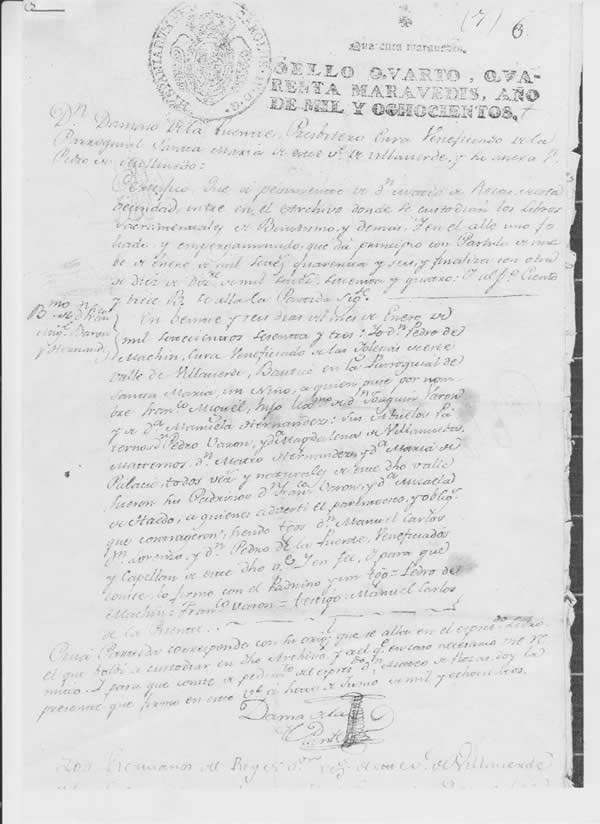 (7) 6
Quarenta maravedis.
SELLO QVARTO, QVA-
RENTA MARAVEDIS, AÑO
DE MIL Y OCHOCIENTOS.
Dn. Damaso de la Fuente, Presbitero Cura Veneficiado de la
Parroquial Santa Maria de este Ve. de Villaverde, y su anexo Sn.
Pedro de
Certifico que a pedimento de dn. de Rozas, de esta
becindad, entre en el Archivo donde se custodian los Libros
Sacramentales de Bautismo, y demas. Y en el allé uno fo
liado, y empergaminado, que da principio con Partida de nue
be de enero de mil setezs. quarenta y seis, y finaliza con otra
de diez de Dizre. de mil setezs. setenta y quatro: Y al fo. Ciento
y trece se alla la Partida sigte.
Bmo. de Franco.
Migl. Varon
y Hernandz.
En beinte y tres dias del mes de Enero de
mil setecientos sesenta y tres: Yo dn. Pedro de
Machin, Cura Veneficiado de las Iglesias de este
valle de Villaverde, Bauticé en la Parroquial de
Santa Maria, un Niño, a quien puse por nom
bre Franco. Miguel, hijo legmo. de dn. Joaquin Varon
y de da. Manuela Hernandez: sus Abuelos Pa
ternos dn. Pedro Varon, y da. Magdalena de Villanueba.
Maternos, dn. Mateo Hernandez y da. Maria de
Palacio, todos vezs. y naturales de este dho valle
fueron sus Padrinos dn. Franco. Varon, y da. Micaela
de Haedo, a quienes advertí el parentesco, y oblign.
que contrageron; siendo tgos dn. Manuel Carlos
Mn. Lorenzo, y dn. Pedro de la Fuente, Veneficiados
y Capellan de este dho Ve. Y en fee, y para que
conste, lo firmo con el Padrino y un tgo = Pedro de
Machin = Franco. Varon = Testigo Manuel Carlos
de la Fuente.
Cuia Partida corresponde con su origl. que se alla en el espresado Libro
el que bolbí a custodiar en dho Archivo, y a el qe. en caso necesario me re
mito. Y para que conste de pedimto. del espresdo. dn. de Rozas doy la
presente, que firmo en este Ve. a de Junio de mil y ochocientos.
Damaso de la
Fuente
Los Escrivanos de Reyes de este Ve. de Villaverde